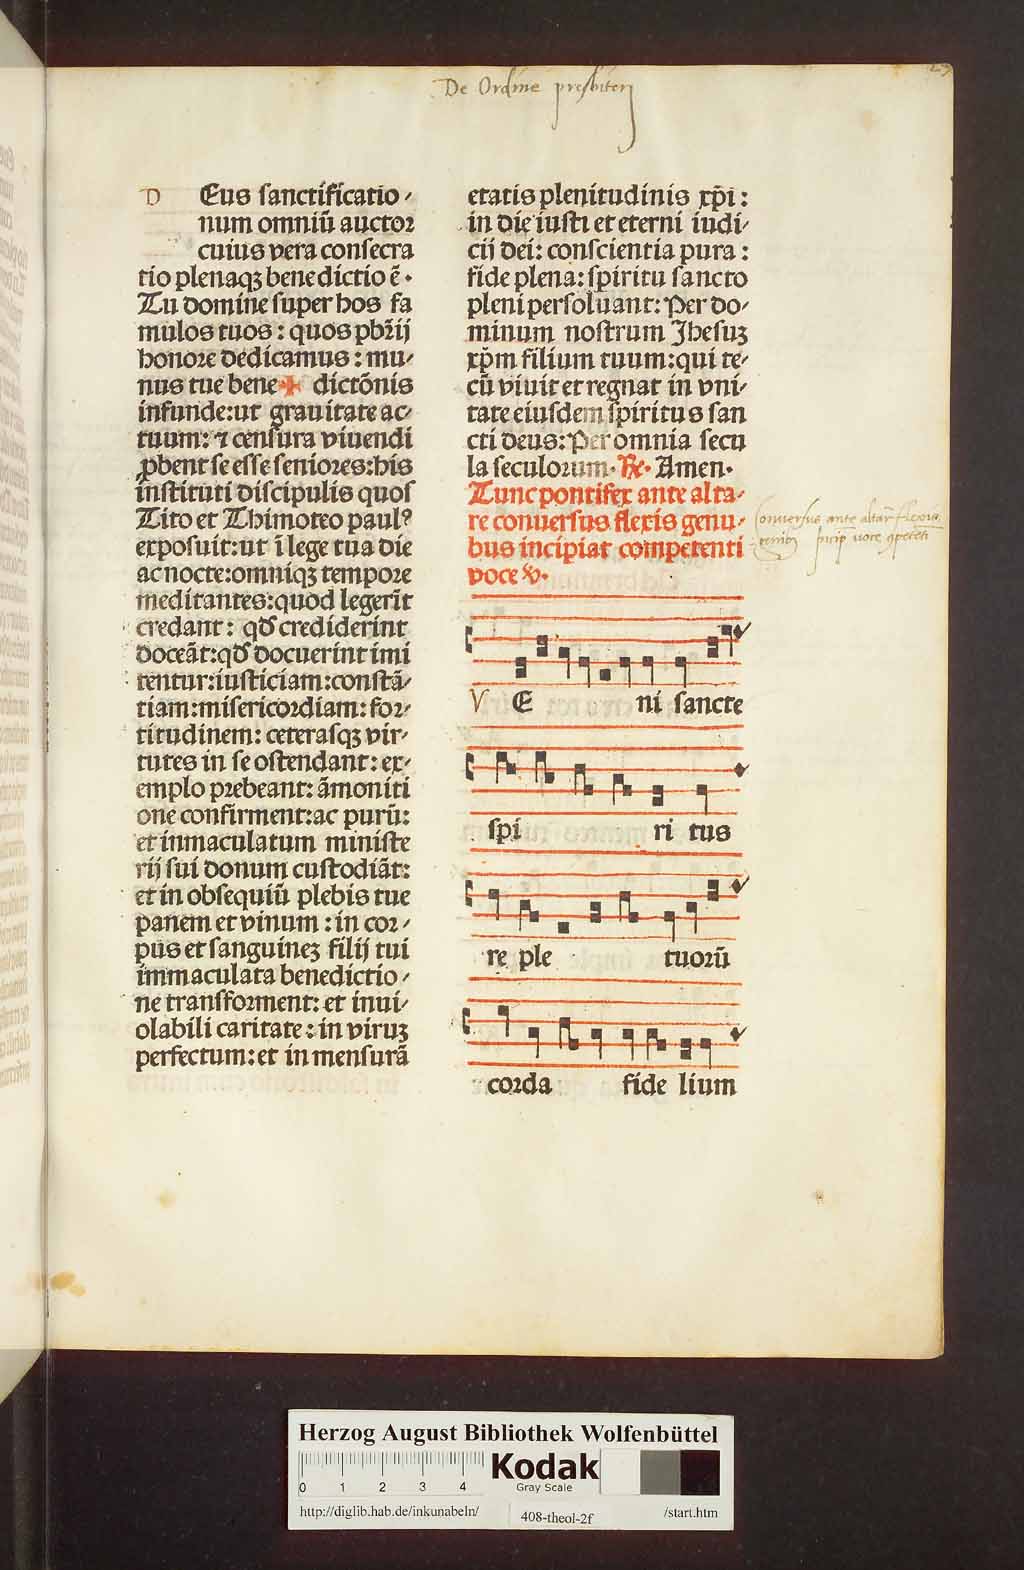 De Ordine presbiterj
D Eus sanctificatio⸗
num omniū auctor
cuius vera consecra
tio plenaqꝫ benedictio ē.
Tu domine super hos fa
mulos tuos: quos pb̄rij
honore dedicamus: mu⸗
nus tue bene✠ dictōnis
infunde:ut grauitate ac⸗
tuum: ⁊ censura viuendi
ꝓbent se esse seniores:his
instituti discipulis quos
Tito et Thimoteo paulꝰ
exposuit:ut ī lege tua die
ac nocte:omniqꝫ tempore
meditantes:quod legerīt
credant: qđ crediderint
doceāt:qđ docuerint imi
tentur:iusticiam:constā⸗
tiam:misericordiam:for⸗
titudinem: ceterasqꝫ vir⸗
tutes in se ostendant: ex⸗
emplo prebeant: āmoniti
one confirment:ac purū:
et inmaculatum ministe
rij sui donum custodiāt:
et in obsequiū plebis tue
panem et vinum : in cor⸗
pus et sanguineꝫ filij tui
immaculata benedictio⸗
ne transforment: et inui⸗
olabili caritate : in viruꝫ
perfectum: et in mensurā
etatis plenitudinis xp̄i:
in die iusti et eterni iudi⸗
cij dei: conscientia pura:
fide plena: spiritu sancto
pleni persoluant: Per do⸗
minum nostrum Jhesuꝫ
xp̄m filium tuum:qui te⸗
cū viuit et regnat in vni⸗
tate eiusdem spiritus san
cti deus: Per omnia secu
la seculorum. ℟. Amen.
Tunc pontifex ante alta⸗
re conuersus flexis genu⸗
bus incipiat competenti
voce ℣.
Conuersus ante altar̄ flexis
genibꝫ incip voce ꝯpetēti
V E ni sancte
spi ri tus
re ple tuorū
corda fide lium
Herzog August Bibliothek Wolfenbüttel
0 1 2 3 4
Kodak
Gray Scale
http://diglib.hab.de/inkunabeln/
408-theol-2f
/start.htm